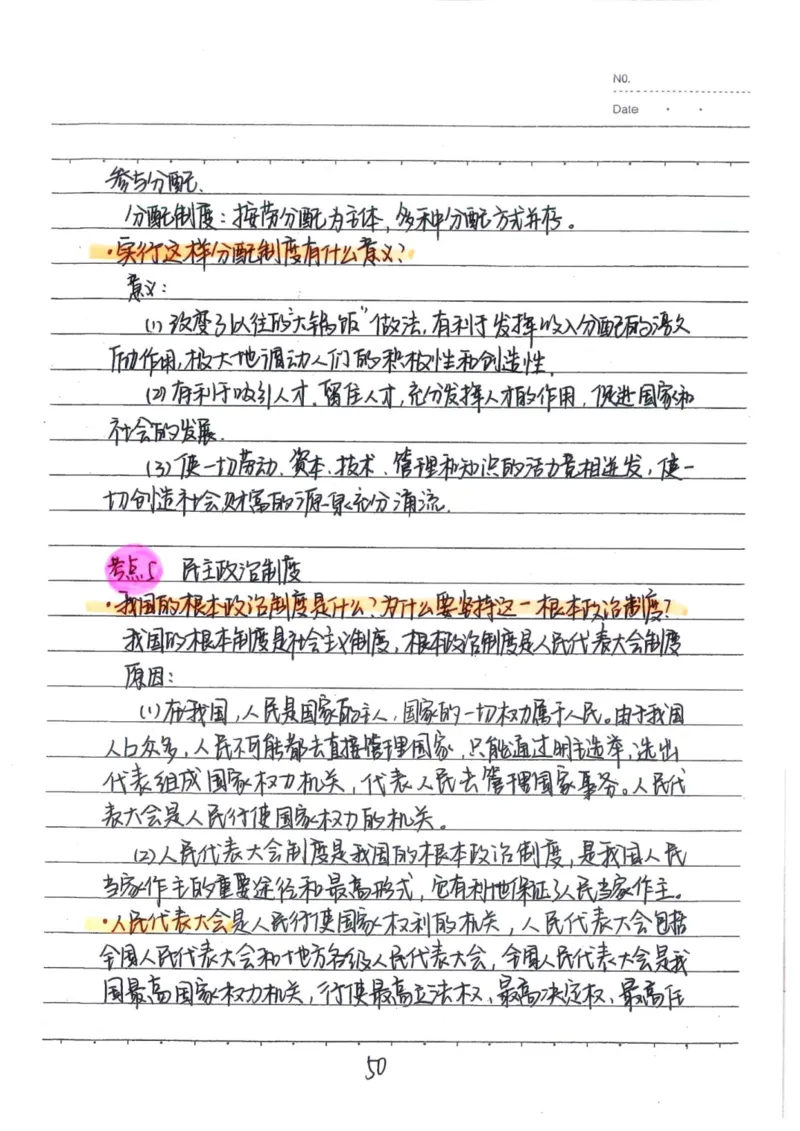 NO.
Date
参与分配.
分配制度：按劳分配为主体，多种分配方式并存。
·实行这样分配制度有什么意义？
意义：
(1) 改变了以往的"大锅饭"做法，有利于发挥收入分配的激
励作用，极大地调动人们的积极性和创造性.
(2) 有利于吸引人才、留住人才，充分发挥人才的作用，促进国家和
社会的发展.
(3) 使一切劳动、资本、技术、管理和知识的活力竞相迸发，使一
切创造社会财富的源泉充分涌流.
考点5 民主政治制度
·我国的根本政治制度是什么？为什么要坚持这一根本政治制度？
我国的根本制度是社会主义制度，根本政治制度是人民代表大会制度
原因：
(1) 在我国，人民是国家的主人，国家的一切权力属于人民。由于我国
人口众多，人民不可能都去直接管理国家，只能通过民主选举，选出
代表组成国家权力机关，代表人民去管理国家事务。人民代
表大会是人民行使国家权力的机关。
(2) 人民代表大会制度是我国的根本政治制度，是我国人民
当家作主的重要途径和最高形式，它有利地保证了人民当家作主。
·人民代表大会是人民行使国家权利的机关，人民代表大会包括
全国人民代表大会和地方各级人民代表大会，全国人民代表大会是我
国最高国家权力机关，行使最高立法权、最高决定权、最高任
50